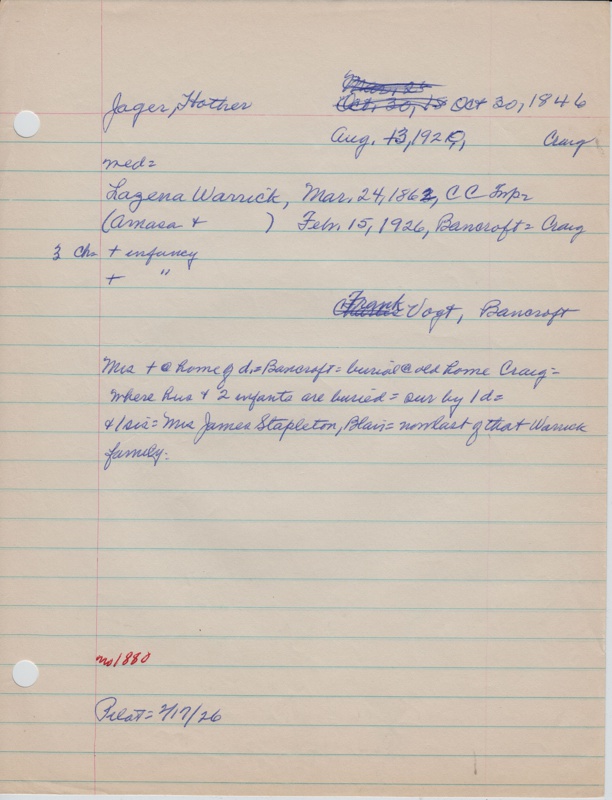 Jager, Hother
Mar. 25
Oct. 30, 15 Oct 30, 1846
Aug. 13, 1920, Craig
med=
Lazena Warrick, Mar. 24, 1862, CC Imp=
(Amasa + ) Feb. 15, 1926, Bancroft = Craig
3 ch= + infancy
+ "
Charles Frank Vogt, Bancroft
Mrs + @ home of d. = Bancroft = burial @ old home Craig =
where hus + 2 infants are buried = sur by 1 d =
+ 1 sis = Mrs James Stapleton, Blair = now last of that Warrick
family.
no 1880
Pilot = 2/17/26